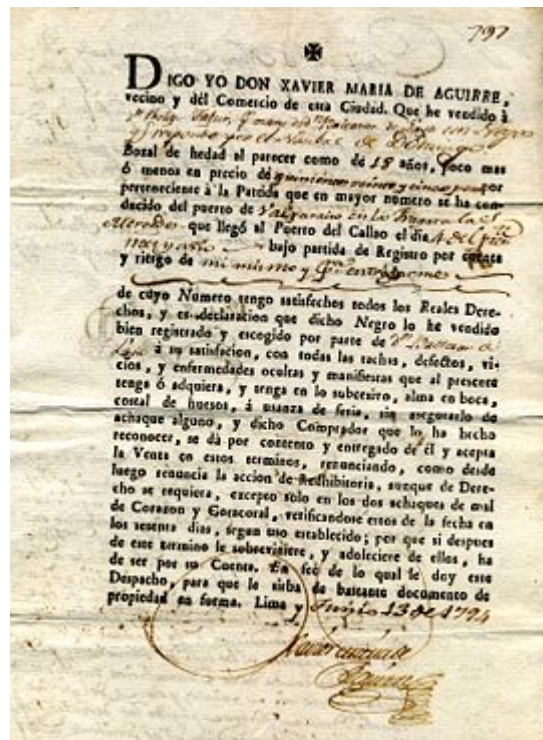 797
DIGO YO DON XAVIER MARIA DE AGUIRRE,
vecino y dél Comercio de esta Ciudad. Que he vendido à
un Negro
Domingo
Bozal de hedad al parecer como de 18 años, poco mas
ó menos en precio de quinientos veinte y cinco pesos por
perteneciente à la Partida que en mayor numero se ha con-
ducido del puerto de Valparaiso en la
Mercedes que llegó al Puerto del Callao el dia 4 de
bajo partida de Registro por cuenta
y riesgo de mi mismo y
de cuyo Numero tengo satisfechos todos los Reales Dere-
chos, y es declaracion que dicho Negro lo he vendido
bien registrado y escogido por parte de
à su satisfacion, con todas las tachas, defectos, vi-
cios, y enfermedades ocultas y manifiestas que al presente
tenga ó adquiera, y tenga en lo subcesivo, alma en boca,
costal de huesos, á usanza de feria, sin asegurarlo de
achaque alguno, y dicho Comprador que lo ha hecho
reconocer, se dà por contento y entregado de él y acepta
la Venta en estos terminos, renunciando, como desde
luego renuncia la accion de Redhibitoria, aunque de Dere-
cho se requiera, excepto solo en los dos achaques de mal
de Corazon y Gotacoral, verificandose estos de la fecha en
los sesenta dias, segun uso establecido; por que si despues
de este termino le sobreviniere, y adoleciere de ellos, ha
de ser por su Cuenta. En feé de lo qual le doy este
Despacho, para que le sirba de bastante documento de
propiedad en forma. Lima y Junio 13 de 1794
Xavier Maria de
Aguirre